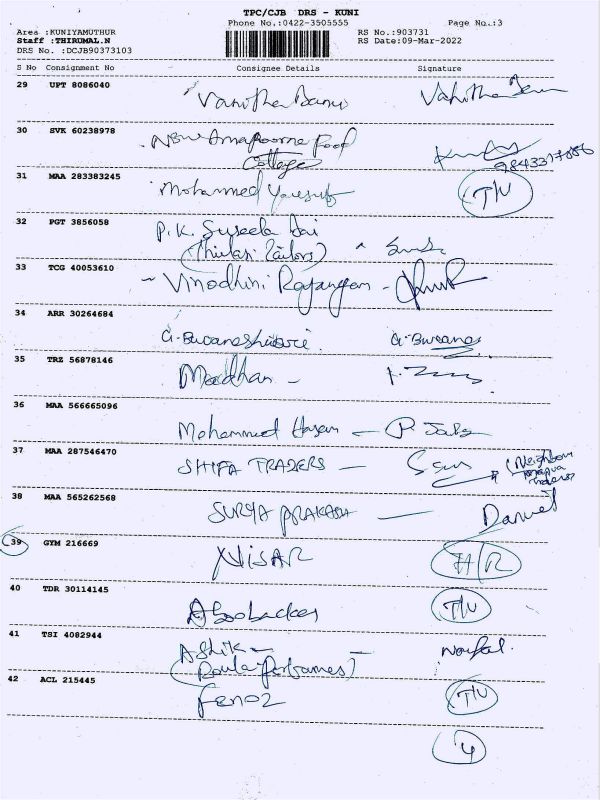 TPC/CJB DRS - KUNI
Phone No.:0422-3505555 Page No.:3
Area :KUNIYAMUTHUR RS No.:903731
Staff :THIRUMAL.N RS Date:09-Mar-2022
DRS No. :DCJB90373103
S No Consignment No Consignee Details Signature
29 UPT 8086040
Vanitha Banu
30 SVK 60238978
New Annapoorna Food
College
31 MAA 283383245
Mohammed Yousuf T/V
32 PGT 3856058
P.K. Suseela Bai
(Thulasi Tailors)
33 TCG 40053610
Vinodhini Rajangam -
34 ARR 30264684
G. Buvaneshwari. G. Buvanes
35 TRZ 56878146
Madhan -
36 MAA 566665096
Mohammed Hasan -
37 MAA 287546470
SHIFA TRADERS - (Neighbour
traders)
38 MAA 565262568
SURYA PRAKASH - Daniel
39 GYM 216669
NISAR H/R
40 TDR 30114145
Aboobacker T/V
41 TSI 4082944
Ashik - - Noufal.
(Perfumes)
42 ACL 215445
Fenoz T/V
4